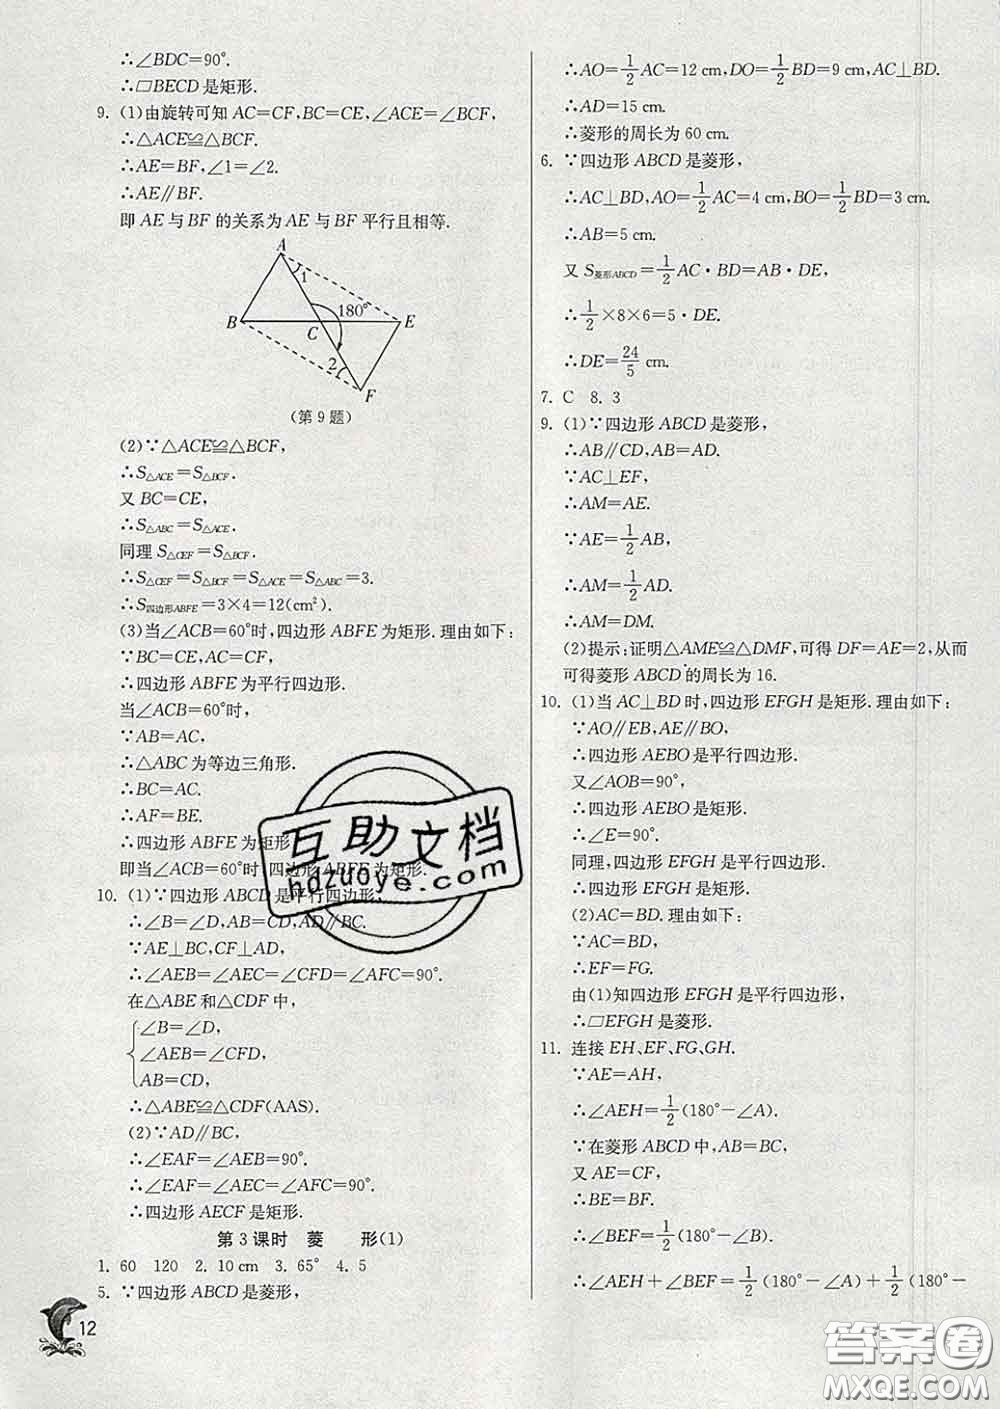 ∴∠BDC=90°.
∴□BECD是矩形.
9. (1)由旋转可知 AC=CF,BC=CE,∠ACE=∠BCF,
∴△ACE≌△BCF.
∴AE=BF,∠1=∠2.
∴AE∥BF.
即 AE 与 BF 的关系为 AE 与 BF 平行且相等.
A
1
180°
B
C
E
2
F
(第 9 题)
(2)∵△ACE≌△BCF,
∴S△ACE=S△BCF.
又 BC=CE,
∴S△ABC=S△ACE.
同理 S△CEF=S△BCF.
∴S△CEF=S△BCF=S△ACE=S△ABC=3.
∴S四边形ABFE=3×4=12(cm²).
(3)当∠ACB=60°时,四边形 ABFE 为矩形.理由如下:
∵BC=CE,AC=CF,
∴四边形 ABFE 为平行四边形.
当∠ACB=60°时,
∵AB=AC,
∴△ABC 为等边三角形.
∴BC=AC.
∴AF=BE.
∴四边形 ABFE 为矩形.
即当∠ACB=60°时,四边形 ABFE 为矩形.
10. (1)∵四边形 ABCD 是平行四边形,
∴∠B=∠D,AB=CD,AD∥BC.
∵AE⊥BC,CF⊥AD,
∴∠AEB=∠AEC=∠CFD=∠AFC=90°.
在△ABE 和△CDF 中,
∠B=∠D,
∠AEB=∠CFD,
AB=CD,
∴△ABE≌△CDF(AAS).
(2)∵AD∥BC,
∴∠EAF=∠AEB=90°.
∴∠EAF=∠AEC=∠AFC=90°.
∴四边形 AECF 是矩形.
第 3 课时 菱 形(1)
1. 60 120 2. 10 cm 3. 65° 4. 5
5. ∵四边形 ABCD 是菱形,
12
∴AO=1/2 AC=12 cm,DO=1/2 BD=9 cm,AC⊥BD.
∴AD=15 cm.
∴菱形的周长为 60 cm.
6. ∵四边形 ABCD 是菱形,
∴AC⊥BD,AO=1/2 AC=4 cm,BO=1/2 BD=3 cm.
∴AB=5 cm.
又 S菱形ABCD=1/2 AC·BD=AB·DE,
∴1/2×8×6=5·DE.
∴DE=24/5 cm.
7. C 8. 3
9. (1)∵四边形 ABCD 是菱形,
∴AB∥CD,AB=AD.
∵AC⊥EF,
∴AM=AE.
∵AE=1/2 AB,
∴AM=1/2 AD.
∴AM=DM.
(2)提示:证明△AME≌△DMF,可得 DF=AE=2,从而
可得菱形 ABCD 的周长为 16.
10. (1)当 AC⊥BD 时,四边形 EFGH 是矩形.理由如下:
∵AO∥EB,AE∥BO,
∴四边形 AEBO 是平行四边形.
又∠AOB=90°,
∴四边形 AEBO 是矩形.
∴∠E=90°.
同理,四边形 EFGH 是平行四边形.
∴四边形 EFGH 是矩形.
(2)AC=BD.理由如下:
∵AC=BD,
∴EF=FG.
由(1)知四边形 EFGH 是平行四边形,
∴□EFGH 是菱形.
11. 连接 EH,EF,FG,GH.
∵AE=AH,
∴∠AEH=1/2(180°-∠A).
∵在菱形 ABCD 中,AB=BC,
又 AE=CF,
∴BE=BF.
∴∠BEF=1/2(180°-∠B).
∴∠AEH+∠BEF=1/2(180°-∠A)+1/2(180°-
互助文档
hdzuoye.com
答案圈
MXQE.COM